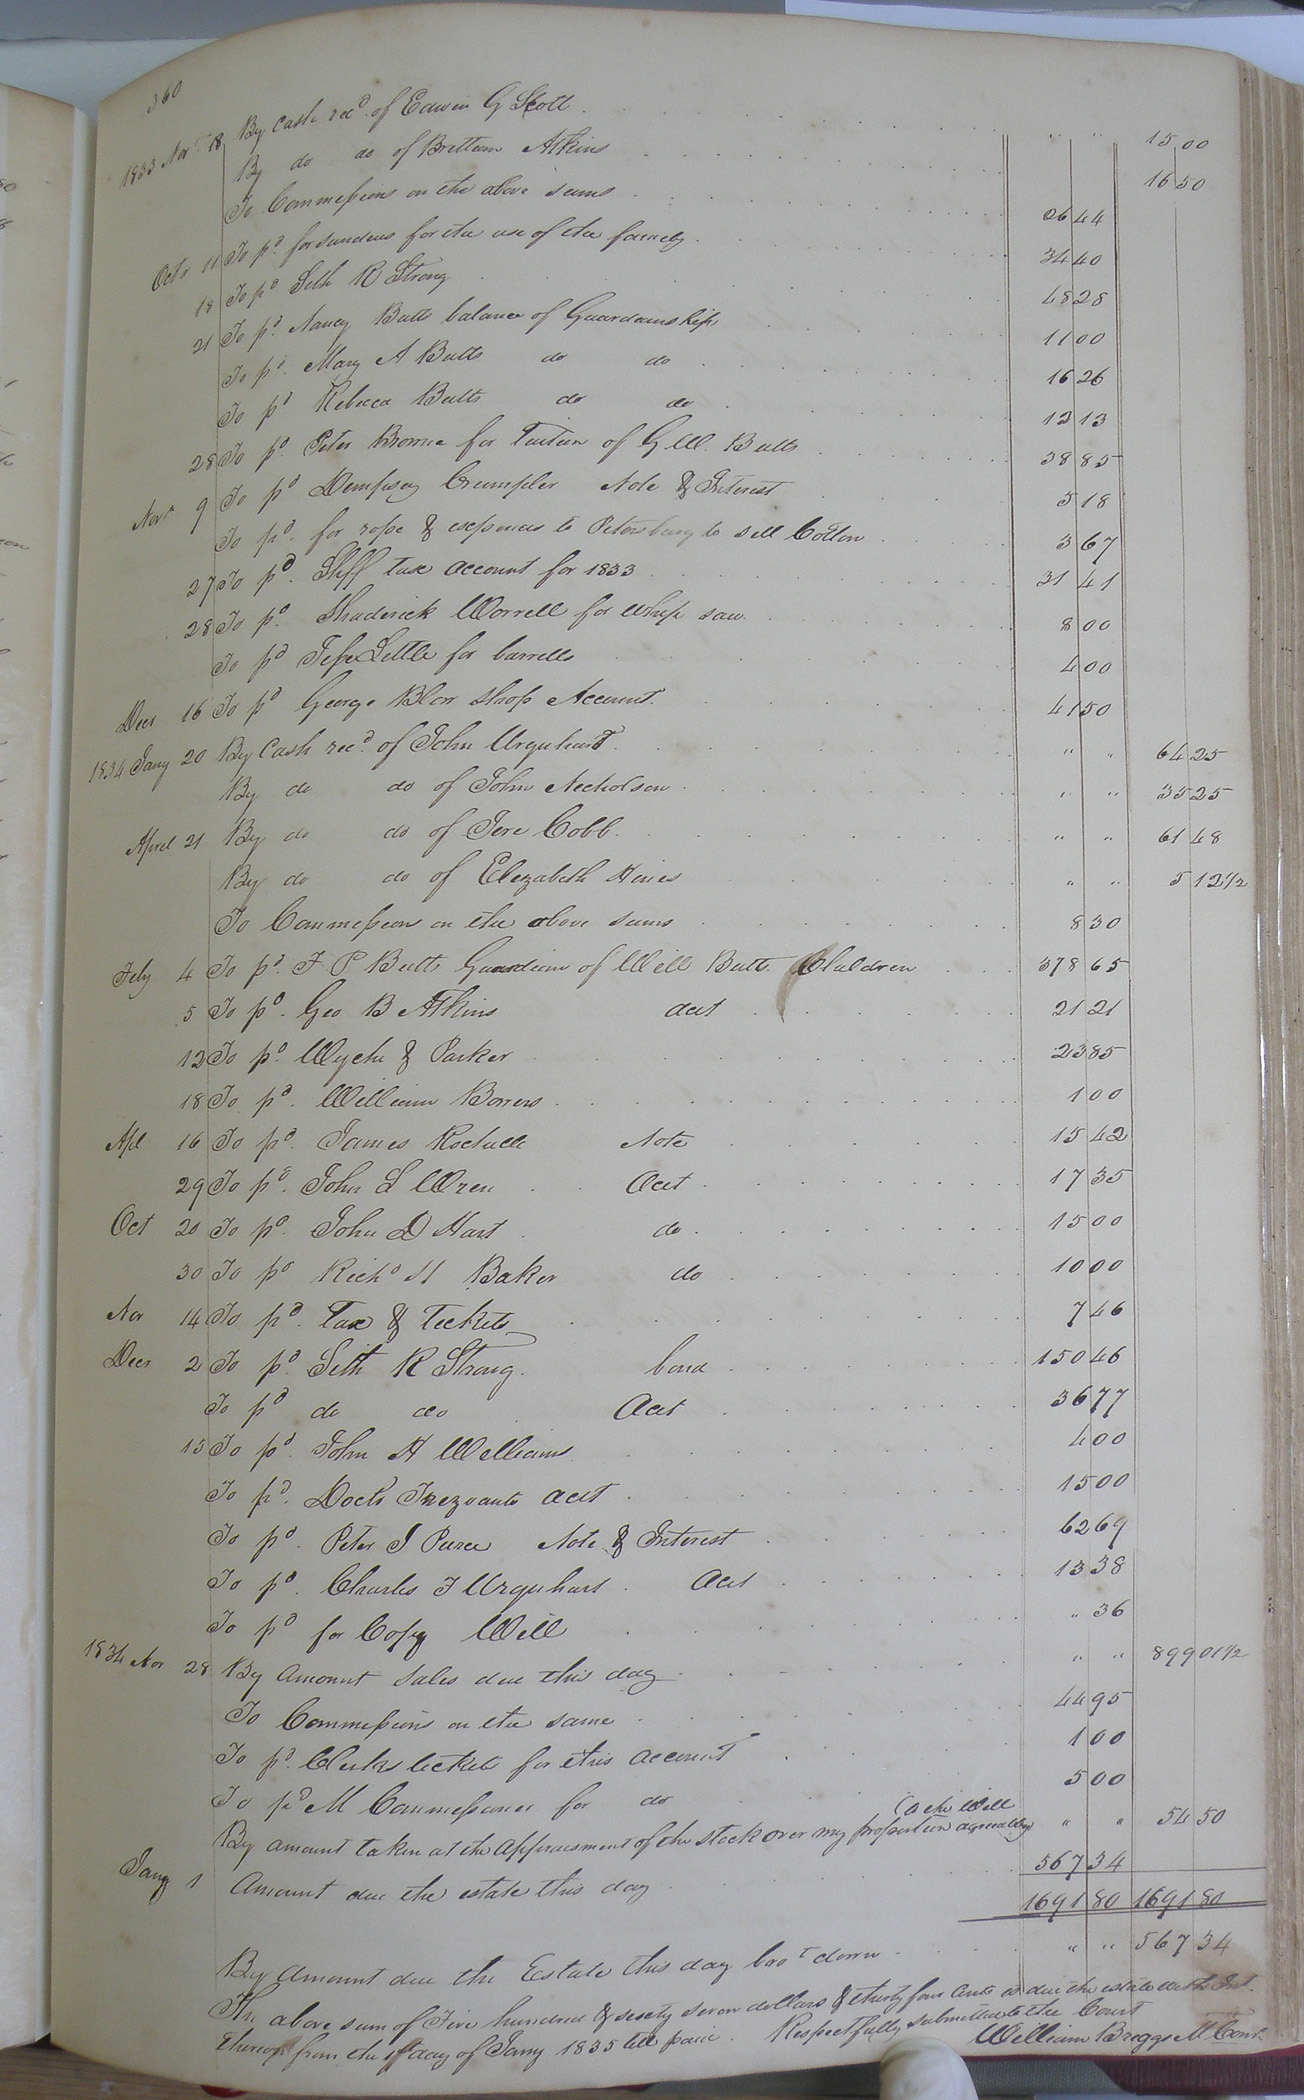 360
1833 Nov 18 By Cash recd. of Edwin G Scott 15 00
By do do of Brittain Atkins 16 50
To Commissions on the above sums 26 44
Octr 11 To pd. for sundries for the use of the family 34 40
18 To pd Seth R Strong 48 28
21 To pd. Nancy Butts balance of Guardianship 11 00
To pd. Mary A Butts do do 16 26
To pd Rebecca Butts do do 12 13
28 To pd. Peter Browne for Tuition of G W. Butts 38 85
Novr 9 To pd Dempsey Crumpler Note & Interest 5 18
To pd. for rope & expences to Petersburg to sell Cotton 3 67
27 To pd. Shff tax account for 1833 31 41
28 To pd. Shaderick Worrell for Whip saw 8 00
To pd Jesse Little for barrells 4 00
Decr 16 To pd George Blow shop Account. 41 50
1834 Jany 20 By Cash recd. of John Urquhart " " 64 25
By do do of John Nicholson " " 35 25
April 21 By do do of Jere Cobb. " " 61 48
By do do of Elizabeth Hines " " 5 12 1/2
To Commissions on the above sums 8 30
Feby 4 To pd. J P Butts Guardian of Will Butts Children 378 65
5 To pd. Geo B Atkins acct 21 21
12 To pd. Wyche & Parker 23 85
18 To pd. William Borrow 1 00
Apl 16 To pd. James Rochelle Note 15 42
29 To pd. John L Wren Acct 17 35
Oct 20 To pd. John D Hart do 15 00
30 To pd Richd H Baker do 10 00
Nov 14 To pd. Tax & Tickets 7 46
Decr 2 To pd Seth R Strong. bond 150 46
To pd do do Acct 36 77
15 To pd. John H Williams 4 00
To pd. Doctr Trezvants acct 15 00
To pd. Peter J Pierce Note & Interest 62 69
To pd. Charles F Urquhart. Acct 13 38
To pd for Copy Will " 36
1834 Nov 28 By Amount Sales due this day " " 899 01 1/2
To Commissions on the same 44 95
To pd. Clerks tickets for this account 1 00
To pd M Commissioner for do 5 00
By amount taken at the Appraisment of the stock over my proportion agreeably (to the Will " " 54 50
Jany 1 Amount due the estate this day 567 34
1691 80 1691 80
By Amount due the Estate this day brot down " " 567 34
The above sum of Five hundred & sixty seven dollars & thirty four cents is due the estate with Int.
thereof from the 1st day of Jany 1835 till paid. Respectfully submitted to the Court
William Briggs M Comr.